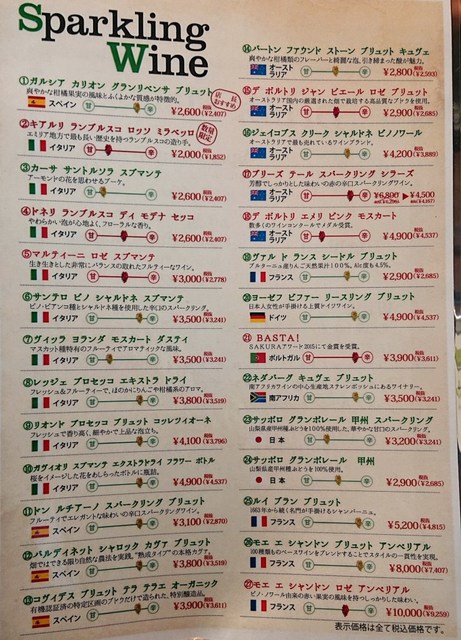 Sparkling
Wine
①ガルシア カリオン グランリベンサ ブリュット
爽やかな柑橘果実の風味とふくよかな質感が特徴的。
店長おすすめ
スペイン 甘 辛 ¥2,600 税抜(¥2,407)
②キアルリ ランブルスコ ロッソ ミラベッロ
エミリア地方で最も長い歴史を持つランブルスコの造り手。
数量限定
イタリア 甘 辛 ¥2,000 税抜(¥1,852)
③カーサ サントルソラ スプマンテ
アーモンドの花を思わせるブーケ。
イタリア 甘 辛 ¥2,600 税抜(¥2,407)
④ドネリ ランブルスコ ディ モデナ セッコ
やわらかい泡が心地よく、フローラルな香り。
イタリア 甘 辛 ¥2,600 税抜(¥2,407)
⑤マルティーニ ロゼ スプマンテ
生き生きとした非常にバランスの取れたフルティーなワイン。
イタリア 甘 辛 ¥3,000 税抜(¥2,778)
⑥サンテロ ピノ シャルドネ スプマンテ
ピノ・ビアンコ種とシャルドネ種を使用した辛口のスパークリング。
イタリア 甘 辛 ¥3,500 税抜(¥3,241)
⑦ヴィッラ ヨランダ モスカート ダスティ
マスカット種特有のフルーティでアロマティックな風味。
イタリア 甘 辛 ¥3,500 税抜(¥3,241)
⑧レッジェ プロセッコ エキストラ ドライ
フレッシュ&フルーティーで、ほのかにりんごや柑橘系のアロマ。
イタリア 甘 辛 ¥3,800 税抜(¥3,519)
⑨リオンド プロセッコ ブリュット コッレツィオーネ
フレッシュで香り高く、細やかで上品な泡立ち。
イタリア 甘 辛 ¥4,100 税抜(¥3,796)
⑩ガヴィオリ スプマンテ エクストラドライ フラワー ボトル
桜をイメージした花をあしらったボトルに瓶詰。
イタリア 甘 辛 ¥4,900 税抜(¥4,537)
⑪ドン ルチアーノ スパークリング ブリュット
フルーティでエレガントな味わいの辛口スパークリングワイン。
スペイン 甘 辛 ¥3,100 税抜(¥2,870)
⑫バルディネット シャロック カヴァ ブリュット
畑ではできる限り自然な農法を実践。"熟成タイプ"の本格カヴァ。
スペイン 甘 辛 ¥3,800 税抜(¥3,519)
⑬コヴィデス ブリュット テラ テレエ オーガニック
有機認証済の特定区画のブドウだけで造られた、特別醸造品。
スペイン 甘 辛 ¥3,900 税抜(¥3,611)
⑭バートン ファウンド ストーン ブリュット キュヴェ
爽やかな柑橘類のフレーバーと綺麗な泡、引き締まった酸が魅力。
オーストラリア 甘 辛 ¥2,800 税抜(¥2,593)
⑮デ ボルトリ ジャン ピエール ロゼ ブリュット
オーストラリア国内の厳選された畑で栽培する高品質なブドウを使用。
オーストラリア 甘 辛 ¥2,900 税抜(¥2,685)
⑯ジェイコブス クリーク シャルドネ ピノノワール
オーストラリアで最も売れているワインブランド。
オーストラリア 甘 辛 ¥4,200 税抜(¥3,889)
⑰ブリーズ テール スパークリング シラーズ
芳醇でしっかりとした味わいの赤の辛口スパークリングワイン。
オーストラリア 甘 辛 ¥6,800 ➡ ¥4,500
税抜(¥6,296) 税抜(¥4,167)
⑱デ ボルトリ エメリ ピンク モスカート
数多くのワインコンクールでメダル受賞。
オーストラリア 甘 辛 ¥4,900 税抜(¥4,537)
⑲ヴァル ド ランス シードル ブリュット
ブルターニュ産りんご天然果汁100%。Alc度も4.5%。
フランス 甘 辛 ¥2,900 税抜(¥2,685)
⑳ヨーゼフ ビファー リースリング ブリュット
日本人女性が手掛ける上質ドイツワイン。
ドイツ 甘 辛 ¥4,900 税抜(¥4,537)
㉑BASTA!
SAKURAアワード2015にて金賞を受賞。
ポルトガル 甘 辛 ¥3,900 税抜(¥3,611)
㉒ネダバーグ キュヴェ ブリュット
南アフリカワインの中心生産地ステレンボッシュにあるワイナリー。
南アフリカ 甘 辛 ¥3,500 税抜(¥3,241)
㉓サッポロ グランポレール 甲州 スパークリング
山梨県産甲州種ぶどうを100%使用した、華やかな甘口のスパークリング。
日本 甘 辛 ¥3,200 税抜(¥3,241)
㉔サッポロ グランポレール 甲州
山梨県産甲州種ぶどうを100%使用。
日本 甘 辛 ¥2,900 税抜(¥2,685)
㉕ルイ ブラン ブリュット
1663年から続く名門が手掛けるシャンパーニュ。
フランス 甘 辛 ¥5,200 税抜(¥4,815)
㉖モエ エ シャンドン ブリュット アンペリアル
100種類ものベースワインをブレンドすることでスタイルの一貫性を実現。
フランス 甘 辛 ¥8,000 税抜(¥7,407)
㉗モエ エ シャンドン ロゼ アンペリアル
ピノ・ノワール由来の赤い果実の風味を持つしっかりした味わい。
フランス 甘 辛 ¥10,000 税抜(¥9,259)
表示価格は全て税込価格です。